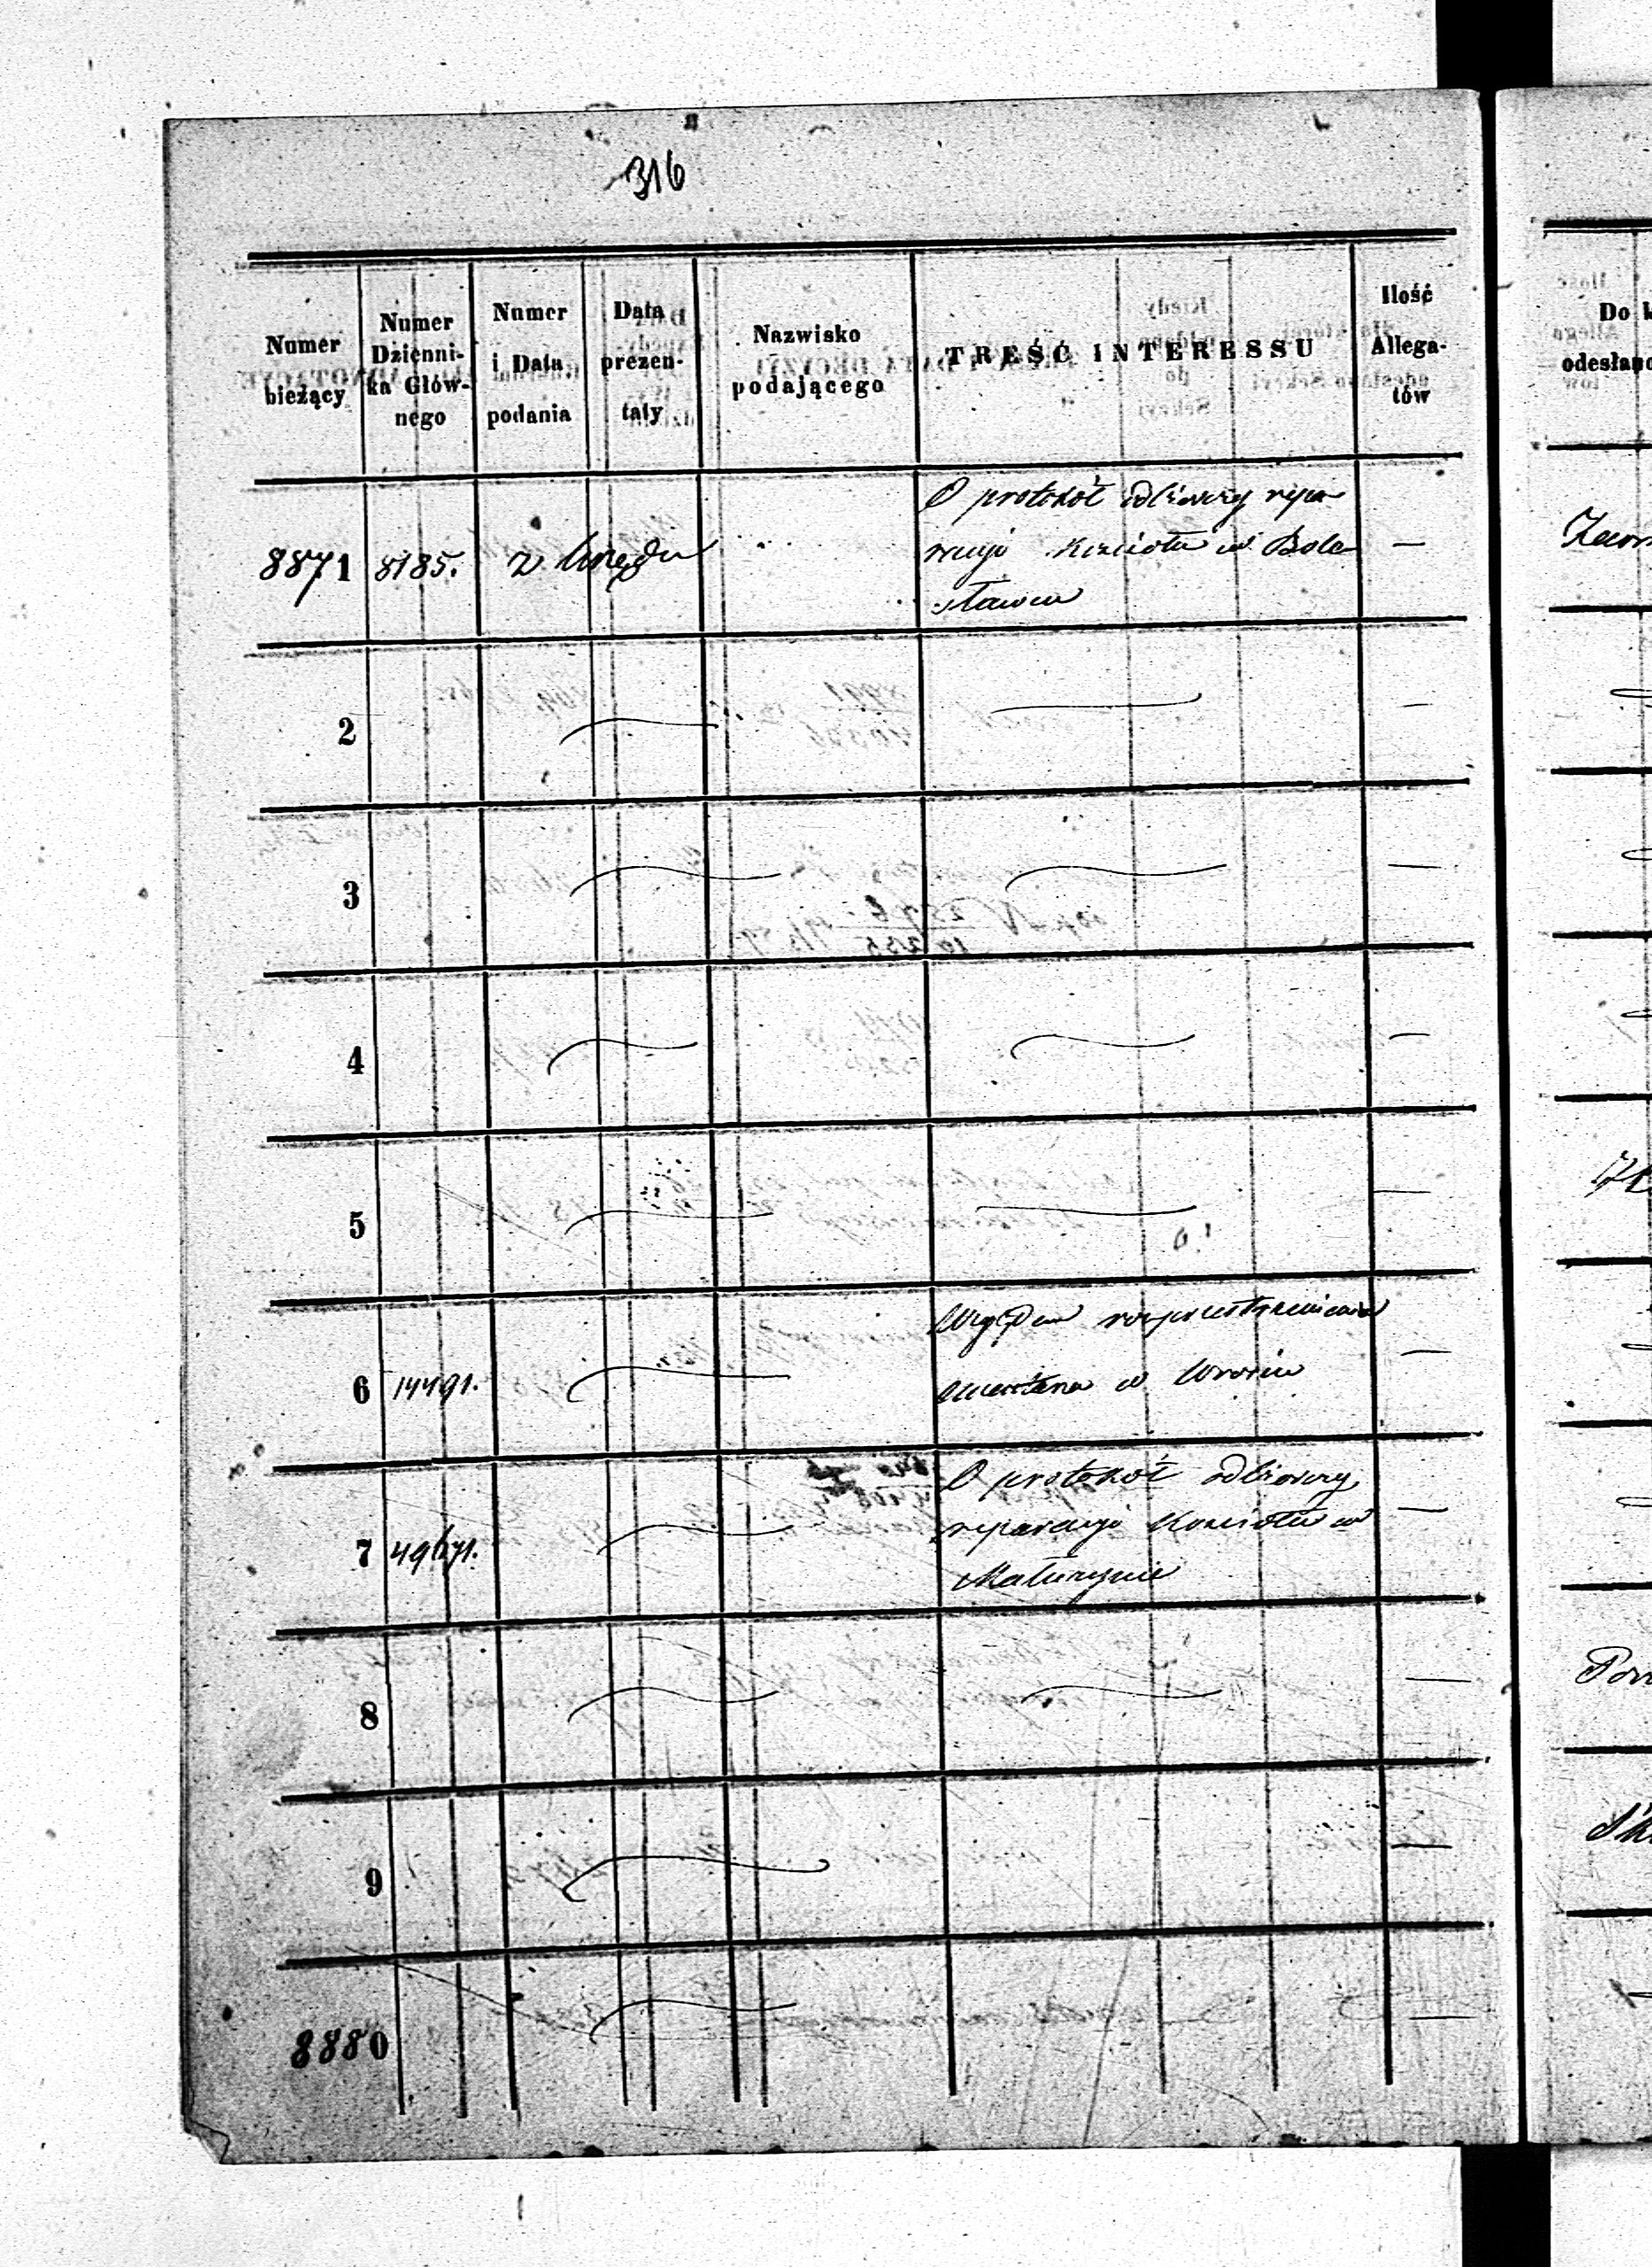 316
Numer
bieżący
Numer
Dzienni-
ka Głów-
nego
Numer
i Data
podania
Data
prezen-
taty
Nazwisko
podającego
TREŚĆ INTERESSU
Ilość
Allega-
tów
Do
odesłano
8871 8185. z Urzędu O protokół odbiorczy repa
racyi Kościoła w Bole
sławcu —
2 —
3 —
4 —
5 —
6 14491. Względem rozprzestrzenienia
cmentarza w —
7 O protokół odbiorczy
reparacyi Kościoła w —
8 —
9 —
8880 —